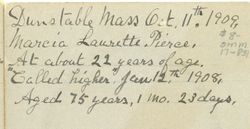 Dunstable Mass Oct. 11th. 1909,
Marcia Laurette Pierce,
At about 22 years of age.
"Called higher" Jan 12th 1908,
Aged 75 years, 1 mo. 23 days,